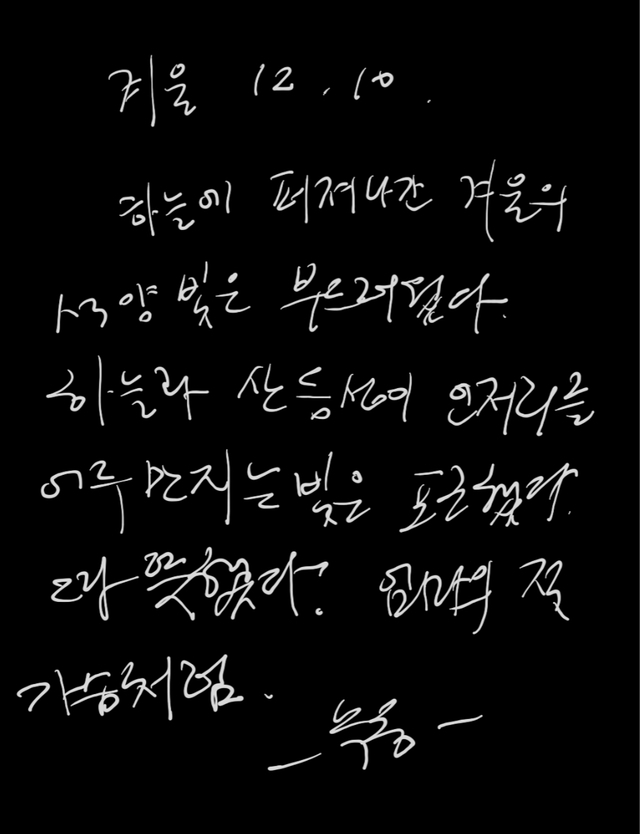 겨울 12.10.
하늘에 퍼져나간 겨울의
석양 빛은 부드러웠다.
하늘과 산등성이 언저리를
어루만지는 빛은 포근했다.
따뜻했다! 엄마의 젖
가슴처럼.